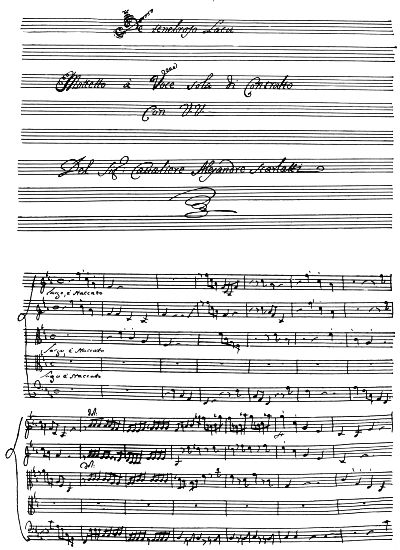 De tenebroso Lacu
Motetto à Voce sola di Contralto
Con VV
Del Sig.r Cavaliere Alessandro Scarlatti
Largo, è staccato
Largo, è staccato
Largo è staccato